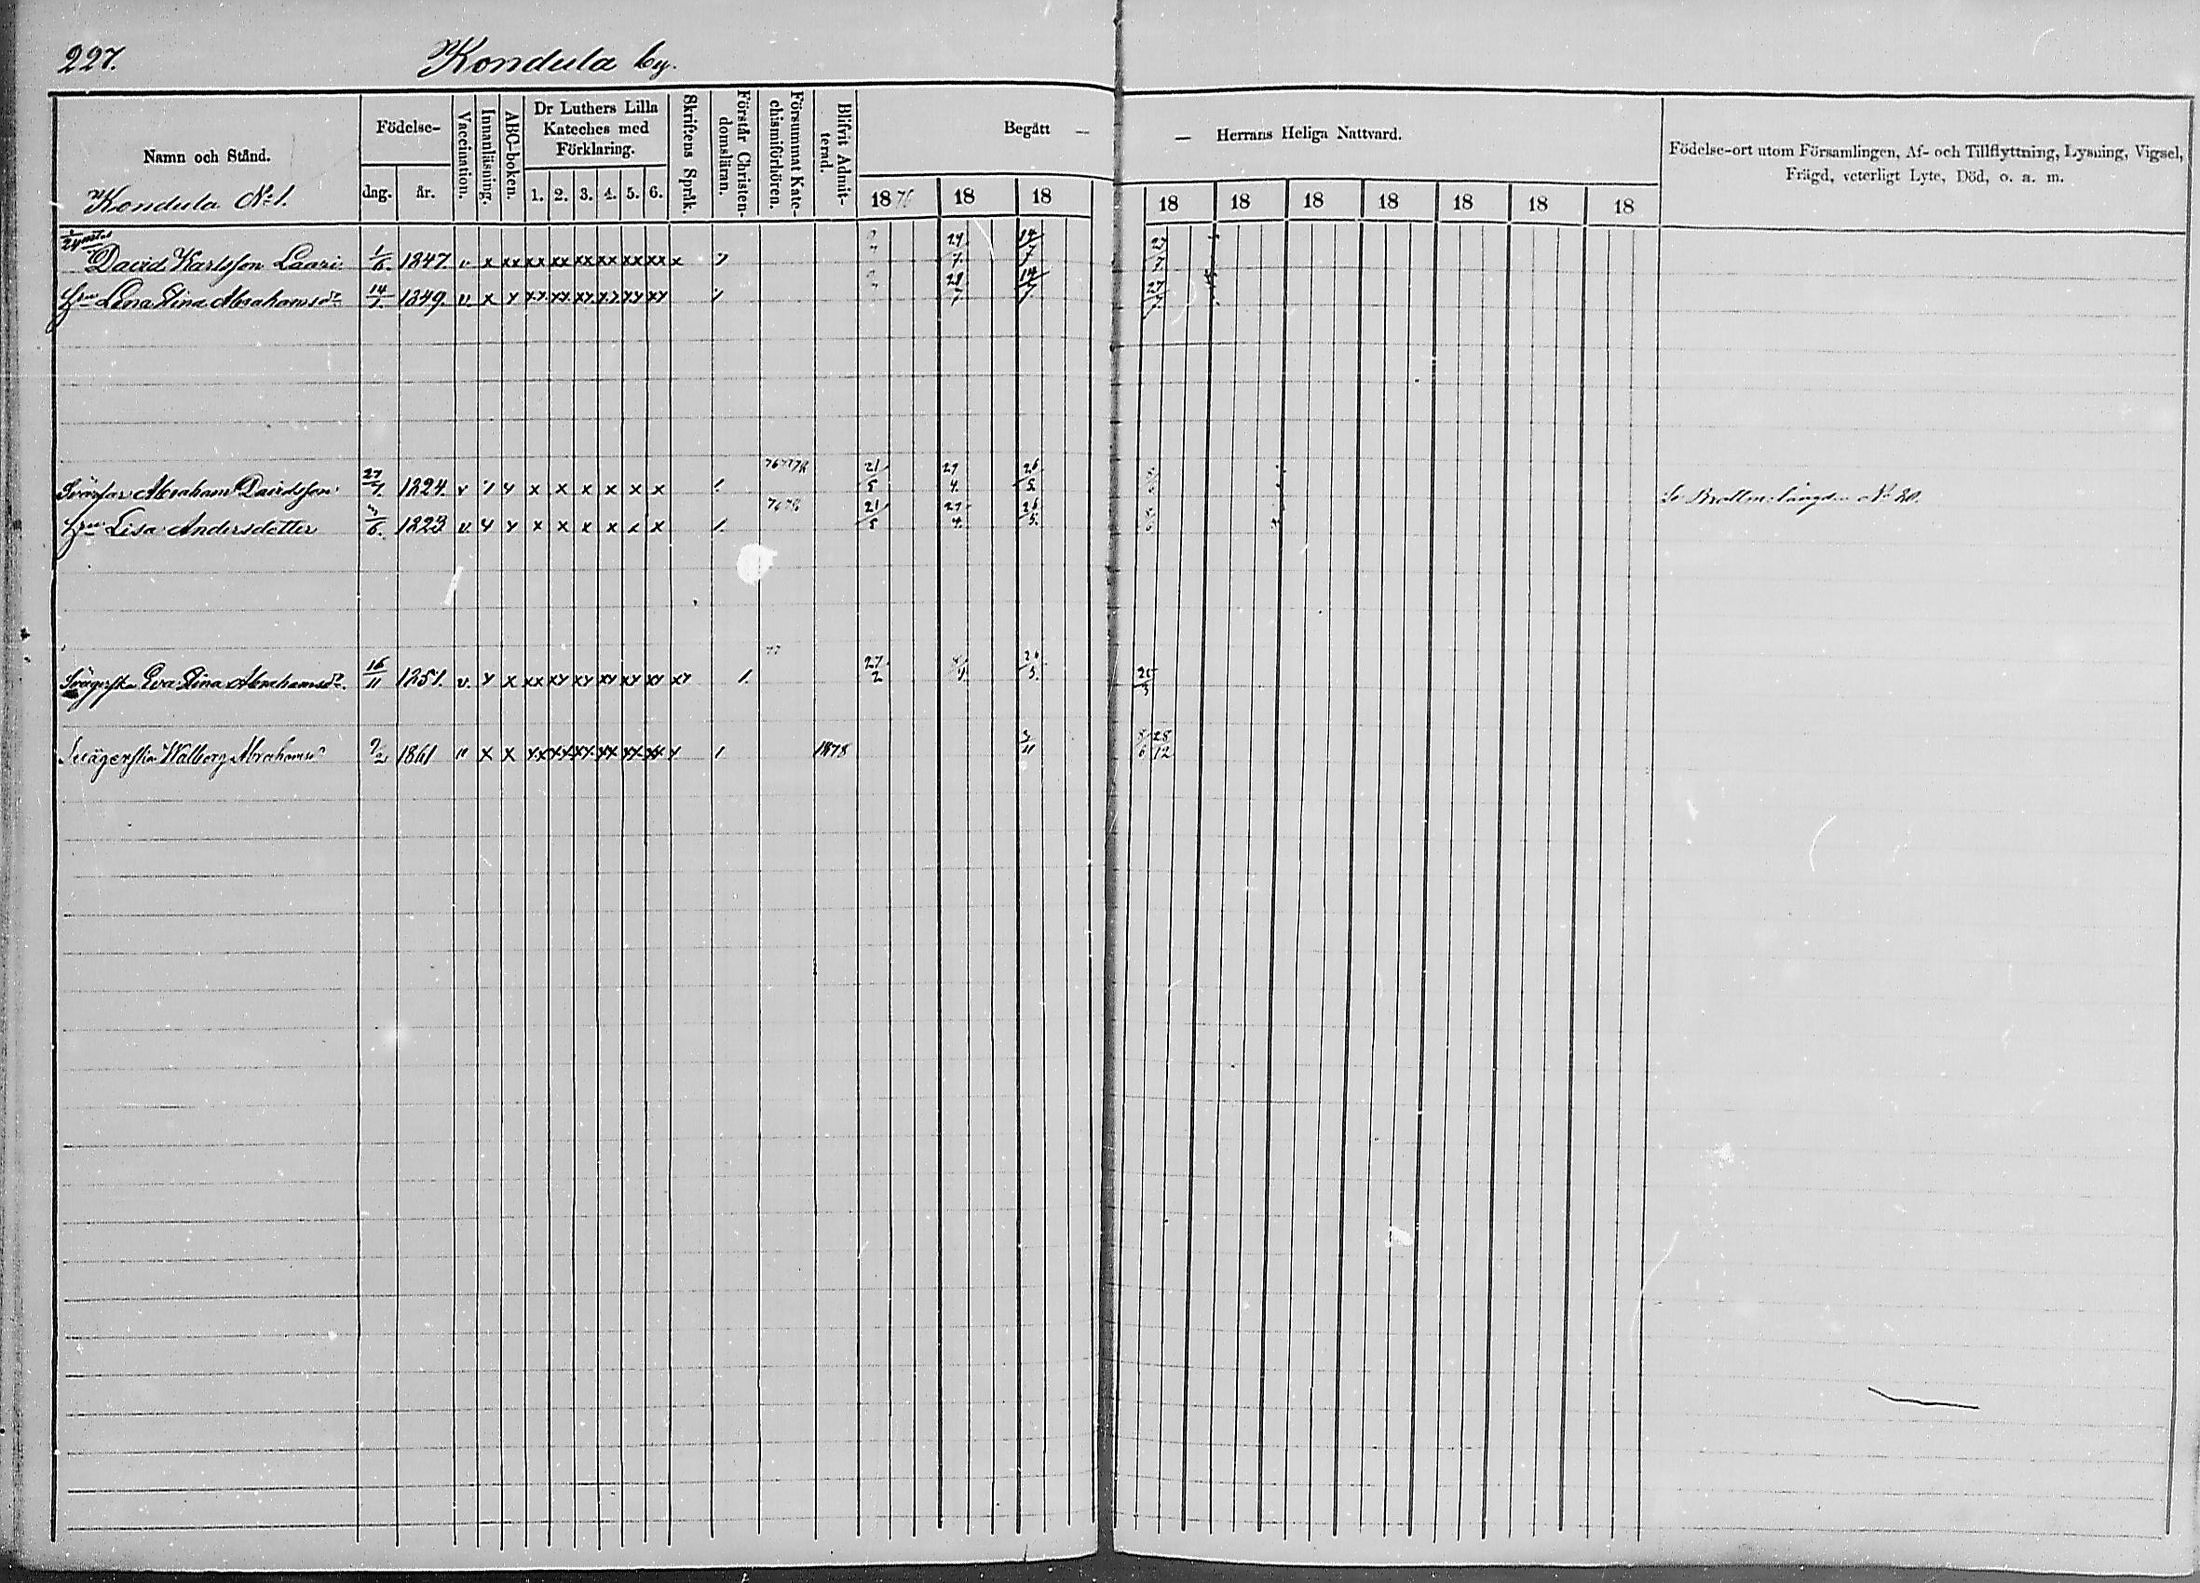 227. Kondula by.
Namn och Stånd.
Kondula No 1.
Födelse-
dag. år.
Vaccination.
Innanläsning.
ABC-boken.
Dr Luthers Lilla
Kateches med
Förklaring.
1. 2. 3. 4. 5. 6.
Skriftens Språk.
Förstår Christen-
domsläran.
Försummat Kate-
chismiförhören.
Blifvit Admit-
terad.
Begått —
— Herrans Heliga Nattvard.
1876 18 18 18 18 18 18 18 18 18
Födelse-ort utom Församlingen, Af- och Tillflyttning, Lysning, Vigsel,
Frägd, veterligt Lyte, Död, o. a. m.
David Karlsson Laari 1847. v x xx xx xx xx xx xx xx x
Hru Lena Stina Abrahamsdr 14/1. 1849. v. x x xx xx xx xx xx xx
Svärfar Abraham Davidsson 27/7. 1824. x x x x x x 21/5 26/5
Hru Lisa Andersdotter 3/6. 1823 v. x x x x x x 21/5 26/5.
No 20.
Svägerska Eva Stina Abrahamsdr. 16/11 1851. v. x x xx xx xx xx xx xx 27/2 26/5.
Svägerska Walborg Abrahamsd 9/2 1861 v x x xx xx xx xx xx xx x 1 1878 3/11 8/6 28/12